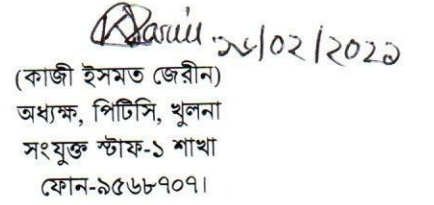 ২৮/০২/২০২১
(কাজী ইসমত জেরীন)
অধ্যক্ষ, পিটিসি, খুলনা
সংযুক্ত স্টাফ-১ শাখা
ফোন-৯৫৬৮৭০৭।